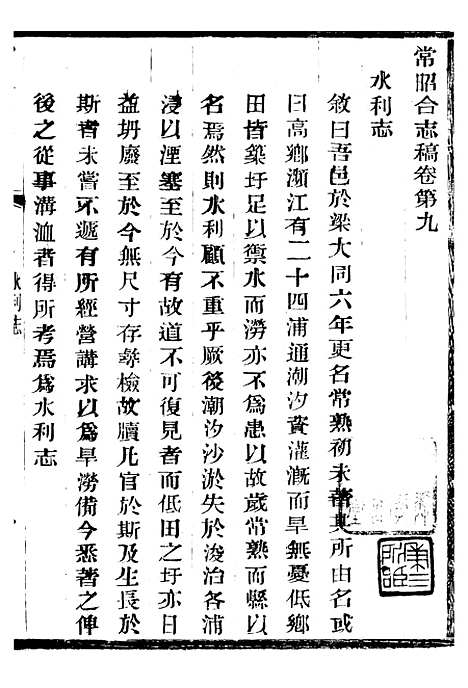 常昭合志稿卷第九
水利志
敘曰吾邑於梁大同六年更名常熟初未著其所由名或
曰高鄉瀕江有二十四浦通潮汐資灌漑而旱無憂低鄉
田皆築圩足以禦水而澇亦不爲患以故歲常熟而縣以
名焉然則水利顧不重乎厥後潮汐沙淤失於浚治各浦
浸以湮塞至於今有故道不可復見者而低田之圩亦日
益坍廢至於今無尺寸存尋檢故牘凡官於斯及生長於
斯者未嘗不遞有所經營講求以爲旱澇備今悉著之俾
後之從事溝洫者得所考焉爲水利志
水利志